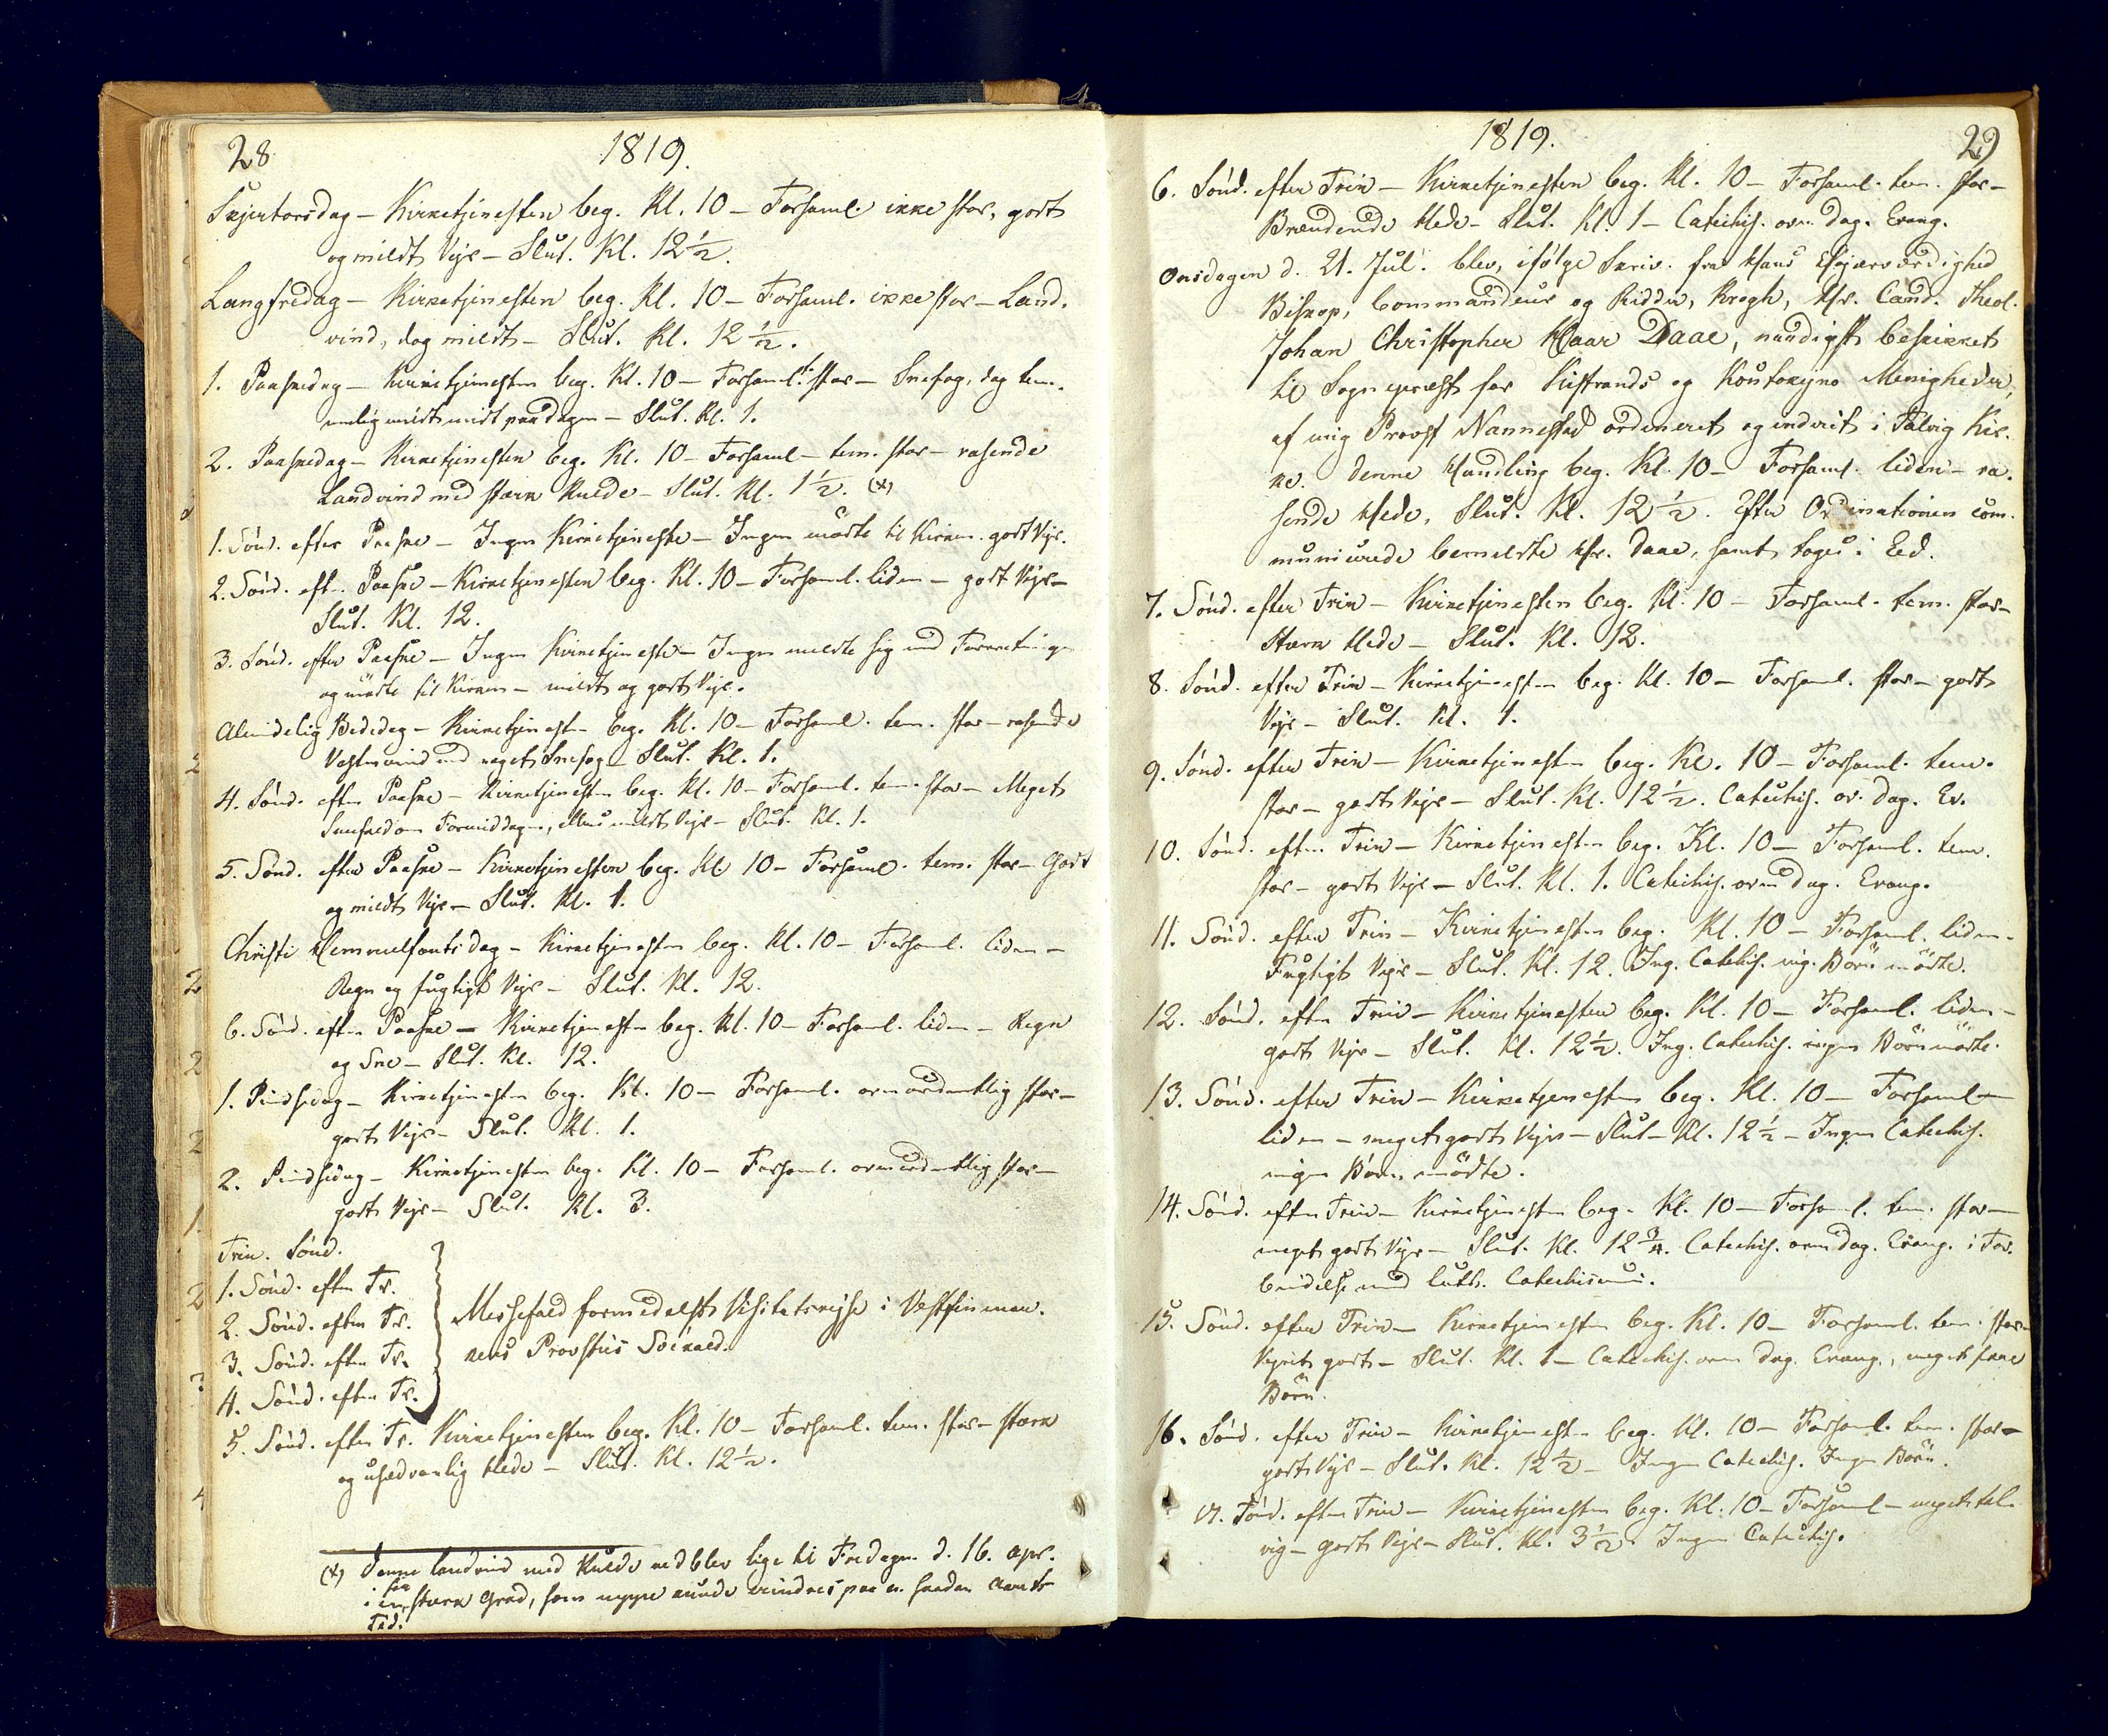 28
1819.
Skjertorsdag – Kirketjenesten beg. Kl. 10 – Forsaml. ikke stor, godt
og mildt Vejr – Slut. Kl. 12½.
Langfredag – Kirketjenesten beg. Kl. 10 – Forsaml. ikke stor – Land-
vind, dog mildt – Slut. Kl. 12½.
1. Paaskedag – Kirketjenesten beg. Kl. 10 – Forsaml. stor – Snefog, dog tem-
melig mildt midt paa dagen – Slut. Kl. 1.
2. Paaskedag – Kirketjenesten beg. Kl. 10 – Forsaml – tem. stor – rasende
Landvind med stærk Kulde – Slut. Kl. 1½. (x)
1. Sönd. efter Paaske – Ingen Kirketjeneste – Ingen mödte til Kirken. godt Vejr.
2. Sönd. eft. Paaske – Kirketjenesten beg. Kl. 10 – Forsaml. liden – godt Vejr –
Slut. Kl. 12.
3. Sönd. efter Paaske – Ingen Kirketjeneste – Ingen meldte sig med Forretninger
og mödte til Kirken – mildt og godt Vejr.
Almindelig Bededag – Kirketjenesten beg. Kl. 10 – Forsaml. tem. stor – rasende
Vestenvind med noget Snefog – Slut. Kl. 1.
4. Sönd. efter Paaske – Kirketjenesten beg. Kl. 10 – Forsaml. tem. stor – Meget
Sneefald om Formiddagen, ellers mildt Vejr – Slut. Kl. 1.
5. Sönd. efter Paaske – Kirketjenesten beg. Kl. 10 – Forsaml. tem. stor – Godt
og mildt Vejr – Slut. Kl. 1.
Christi Hemmelfartsdag – Kirketjenesten beg. Kl. 10 – Forsaml. liden –
Regn og fugtigt Vejr – Slut. Kl. 12.
6. Sönd. efter Paaske – Kirketjenesten beg. Kl. 10 – Forsaml. liden – Regn
og Sne – Slut. Kl. 12.
1. Pindsedag – Kirketjenesten beg. Kl. 10 – Forsaml. overordentlig stor –
godt Vejr – Slut. Kl. 1.
2. Pindsedag – Kirketjenesten beg. Kl. 10 – Forsaml. overordentlig stor –
godt Vejr – Slut. Kl. 3.
Trin. Sönd.
1. Sönd. efter Tr.
2. Sönd. efter Tr.
3. Sönd. efter Tr.
4. Sönd. efter Tr.
Messefald formedelst Visitatsrejse i Vestfinmar-
kens Provstie Soknald.
5. Sönd. efter Tr. Kirketjenesten beg. Kl. 10 – Forsaml. tem. stor – stærk
og usedvanlig Hede – Slut. Kl. 12½.
(x) Denne Landvind med Kulde vedblev lige til Fredagen d. 16. Apr.
i en saa stærk Grad, som neppe kunde mindes paa en saadan Aarets
Tid.
1819.
29
6. Sönd. efter Trin – Kirketjenesten beg. Kl. 10 – Forsaml. tem. stor –
Brændende Hede – Slut. Kl. 1 – Catechis. over Dag. Evang.
Onsdagen d. 21. Jul. blev, ifölge Skriv. fra Hans Höjærværdighed
Biskop, Commandeur og Ridder, Krogh, Hr. Cand. Theol.
Johan Christopher Haar Daae, naadigst beskikket
til Sognepræst for Kistrands og Koutokejno Menigheder,
af mig Provst Nannestad ordineret og indviet i Talvig Kir-
ke. Denne Handling beg. Kl. 10 – Forsaml. liden – ra-
sende Hede. Slut. Kl. 12½. Efter Ordinationen com-
municerede bemeldte Hr. Daae, samt toges i Eed.
7. Sönd. efter Trin – Kirketjenesten beg. Kl. 10 – Forsaml. tem. stor –
Stærk Hede – Slut. Kl. 12.
8. Sönd. efter Trin – Kirketjenesten beg. Kl. 10 – Forsaml. stor – godt
Vejr – Slut. Kl. 1.
9. Sönd. efter Trin – Kirketjenesten beg. Kl. 10 – Forsaml. tem.
stor – godt Vejr – Slut. Kl. 12½. Catechis. ov. Dag. Ev.
10. Sönd. efter Trin – Kirketjenesten beg. Kl. 10 – Forsaml. tem.
stor – godt Vejr – Slut. Kl. 1. Catechis. over Dag. Evang.
11. Sönd. efter Trin – Kirketjenesten beg. Kl. 10 – Forsaml. liden –
Fugtigt Vejr – Slut. Kl. 12. Ing. Catechis. ing. Börn mödte.
12. Sönd. efter Trin – Kirketjenesten beg. Kl. 10 – Forsaml. liden –
godt Vejr – Slut. Kl. 12½. Ing. Catechis. ingen Börn mödte.
13. Sönd. efter Trin – Kirketjenesten beg. Kl. 10 – Forsaml –
liden – meget godt Vejr – Slut – Kl. 12½ – Ingen Catechis.
ingen Börn mödte.
14. Sönd. efter Trin – Kirketjenesten beg. Kl. 10 – Forsaml. tem. stor –
meget godt Vejr – Slut. Kl. 12¾. Catechis. over Dag. Evang. i For-
bindelse med Luth. Catechismus.
15. Sönd. efter Trin – Kirketjenesten beg. Kl. 10 – Forsaml. tem. stor –
Vejret godt – Slut. Kl. 1 – Catechis. over Dag. Evang., meget faae
Börn.
16. Sönd. efter Trin – Kirketjenesten beg. Kl. 10 – Forsaml. tem. stor –
godt Vejr – Slut. Kl. 12½ – Ingen Catechis. Ingen Börn.
17. Sönd. efter Trin – Kirketjenesten beg. Kl. 10 – Forsaml – meget tal-
rig – godt Vejr – Slut. Kl. 3½. Ingen Catechis.